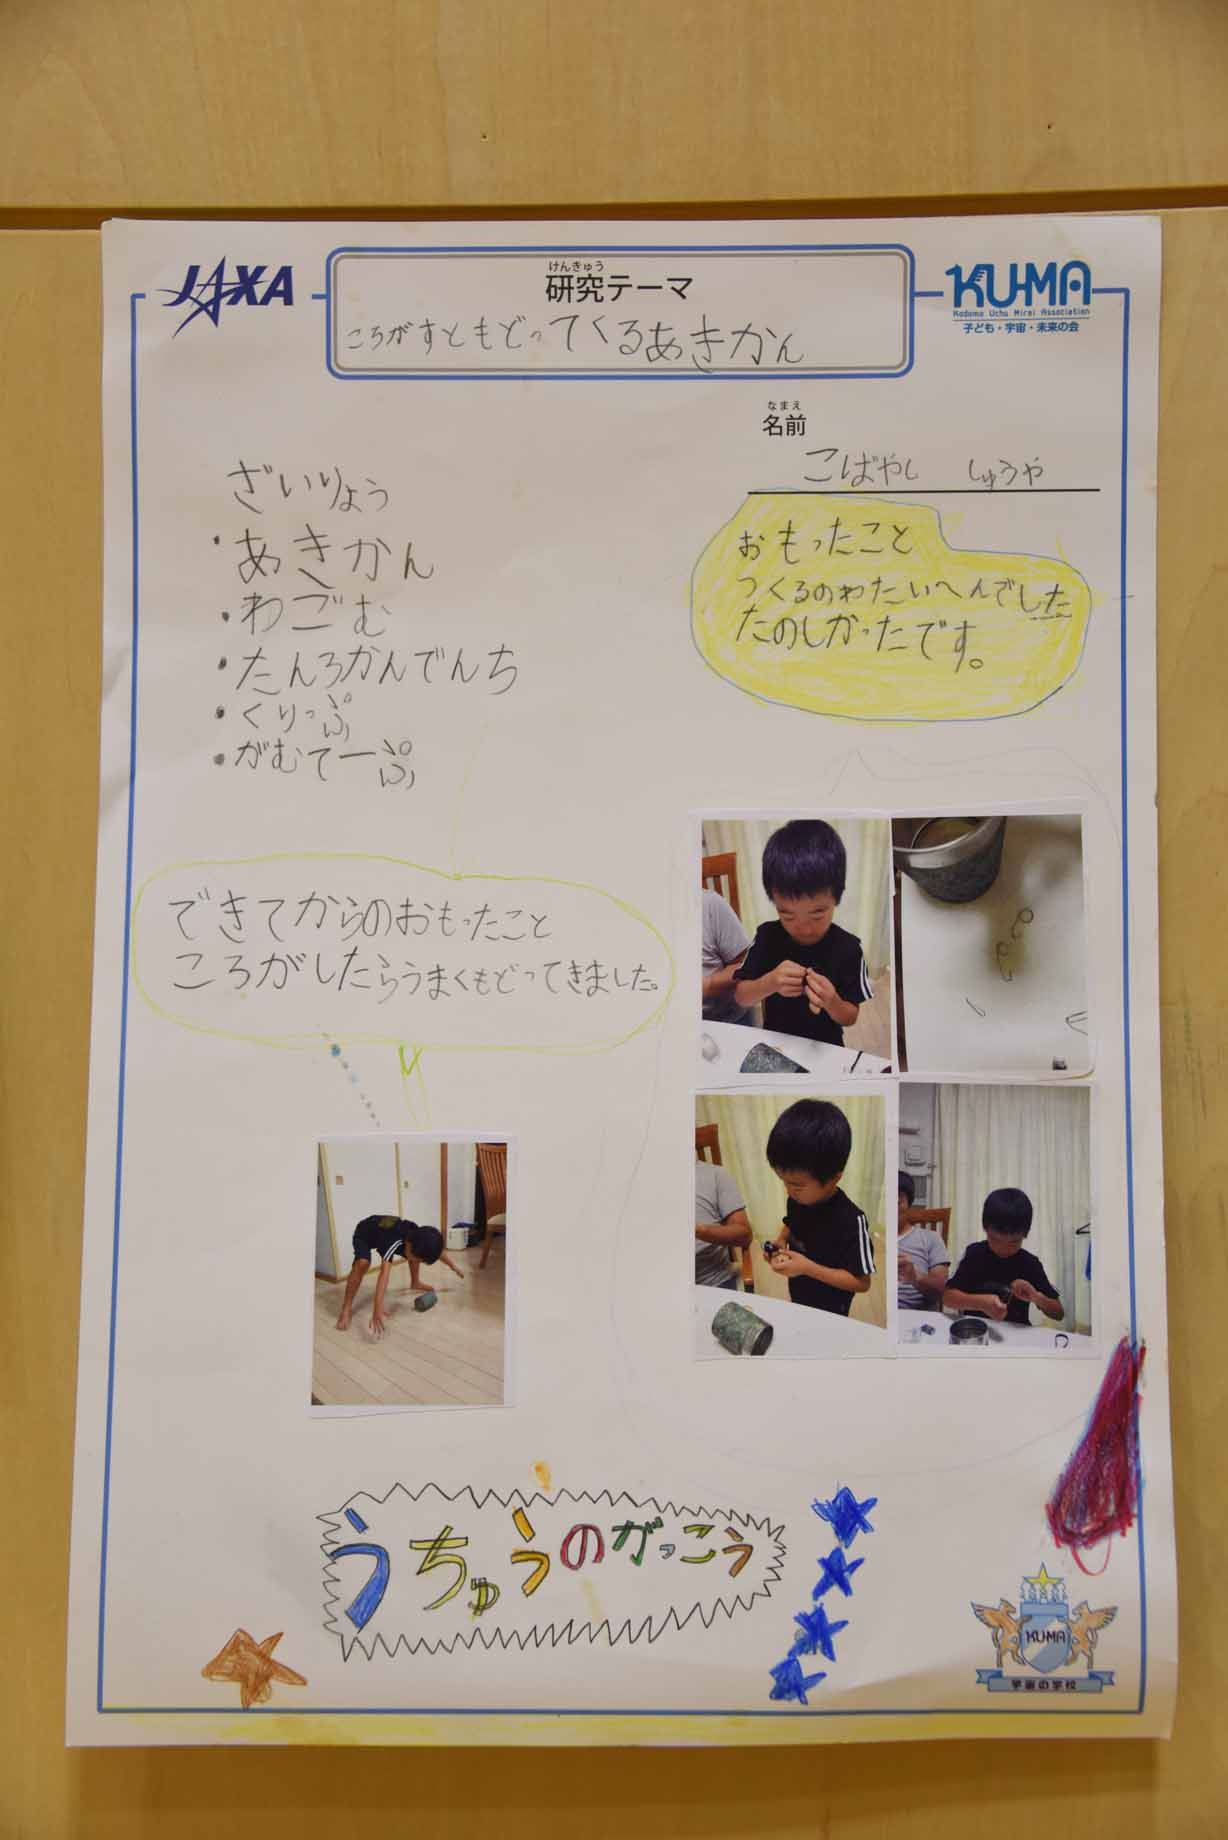 JAXA
けんきゅう
研究テーマ
ころがすともどってくるあきかん
KU-MA
Kodomo Uchu Mirai Association
子ども・宇宙・未来の会
なまえ
名前
こばやし しゅうや
ざいりょう
・あきかん
・わごむ
・たんろかんでんち
・くりっぷ
・がむてーぷ
おもったこと
つくるのわたいへんでした
たのしかったです。
できてからのおもったこと
ころがしたらうまくもどってきました。
うちゅうのがっこう
KU-MA
宇宙の学校